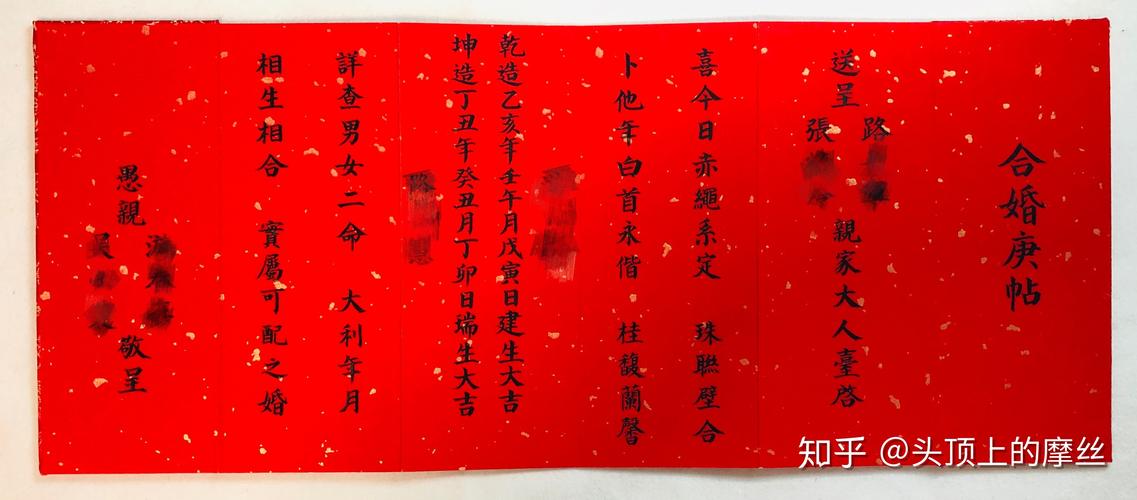 合婚庚帖
送呈
路
張
親家大人臺啓
喜今日赤繩系定 珠聯壁合
卜他年白首永偕 桂馥蘭馨
乾造乙亥年壬午月戊寅日建生大吉
坤造丁丑年癸丑月丁卯日瑞生大吉
詳查男女二命 大利年月
相生相合 實屬可配之婚
愚親
敬呈
知乎 @头顶上的摩丝